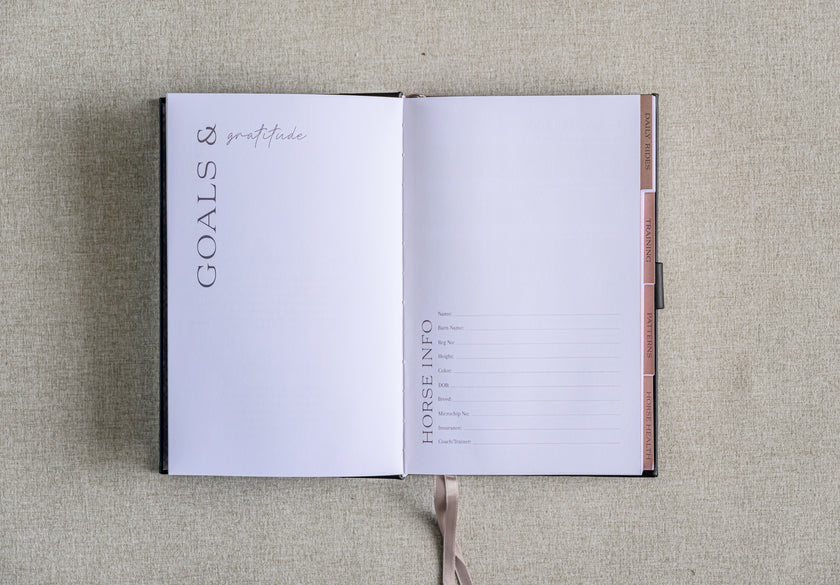 GOALS & gratitude
HORSE INFO
Name:
Barn Name:
Reg No:
Height:
Color:
DOB:
Breed:
Microchip No:
Insurance:
Coach/Trainer:
DAILY RIDES
TRAINING
PATTERNS
HORSE HEALTH